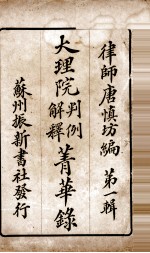 律師唐慎坊編　第一輯
大理院判例解釋菁華錄
蘇州振新書社發行